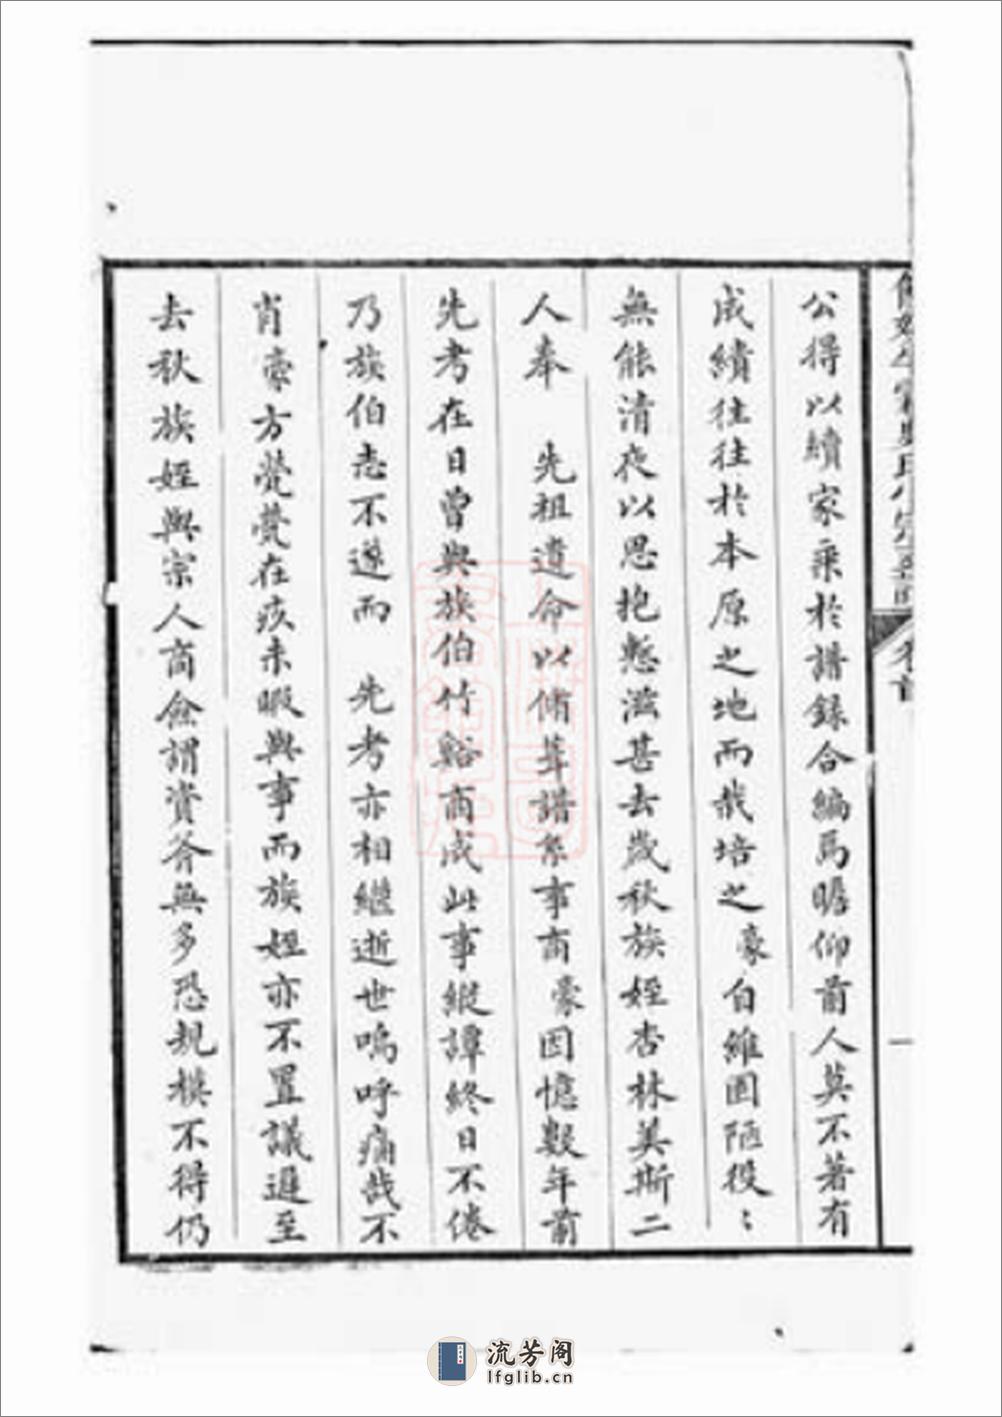 公得以續家乘於譜錄合編焉瞻仰前人莫不著有
成績往往於本原之地而栽培之豪自維固陋役〻
無能清夜以思抱慙滋甚去歲秋族姪杏林英斯二
人奉　先祖遺命以脩葺譜系事商豪因憶數年前
先考在日曾與族伯竹谿商成此事縱譚終日不倦
乃族伯志不遂而　先考亦相繼逝世嗚呼痛哉不
肖豪方煢煢在疚未暇與事而族姪亦不置議遲至
去秋族姪與宗人商僉謂資斧無多恐規模不得仍
卷首
一
流芳阁
lfglib.cn